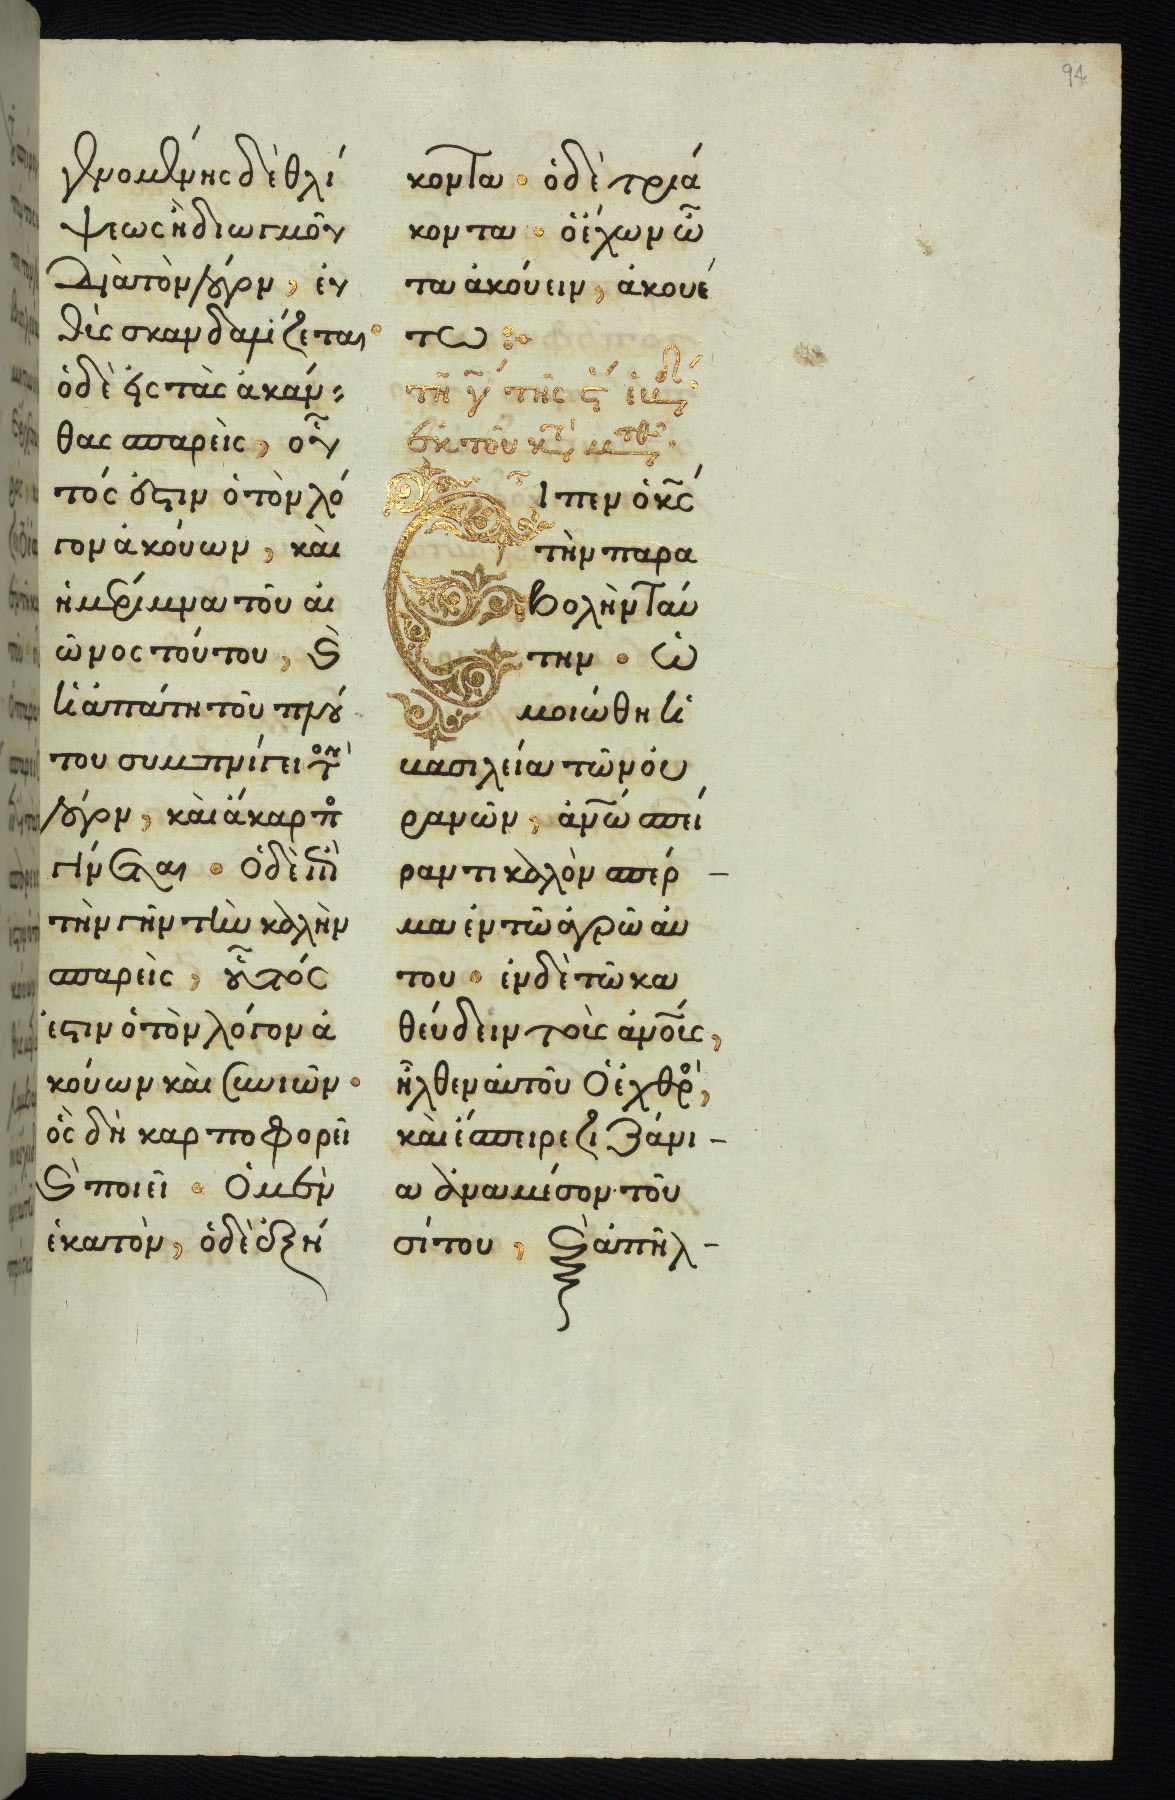 94
γενομένης δὲ θλί
ψεως ἢ διωγμοῦ
διὰ τὸν λόγον, εὐ
θὺς σκανδαλίζεται.
ὁ δὲ εἰς τὰς ἀκάν
θας σπαρεὶς, οὗ
τός ἐστιν ὁ τὸν λό
γον ἀκούων, καὶ
ἡ μέριμνα τοῦ αἰ
ῶνος τούτου, καὶ
ἡ ἀπάτη τοῦ πλού
του συμπνίγει τὸν
λόγον, καὶ ἄκαρπος
γίνεται. ὁ δὲ ἐπὶ
τὴν γῆν τὴν καλὴν
σπαρεὶς, οὗτός
ἐστιν ὁ τὸν λόγον ἀ
κούων καὶ συνιῶν.
ὃς δὴ καρποφορεῖ
καὶ ποιεῖ. ὁ μὲν
ἑκατὸν, ὁ δὲ ἑξή
κοντα. ὁ δὲ τριά
κοντα. ὁ ἔχων ὦ
τα ἀκούειν, ἀκουέ
τω
τῇ γ´ τῆς ϛ´ ἑβδ
ἐκ τοῦ κτ μτθ.
Εἶπεν ὁ κς
τὴν παρα
βολὴν ταύ
την. Ὡ
μοιώθη ἡ
βασιλεία τῶν οὐ
ρανῶν, ἀνῳ σπεί
ραντι καλὸν σπέρ
μα ἐν τῷ ἀγρῷ αὐ
του. ἐν δὲ τῷ κα
θεύδειν τοὺς ἀνους,
ἦλθεν αὐτοῦ ὁ ἐχθρὸς,
καὶ ἔσπειρε ζιζάνι
α ἀνὰ μέσον τοῦ
σίτου, καὶ ἀπῆλ